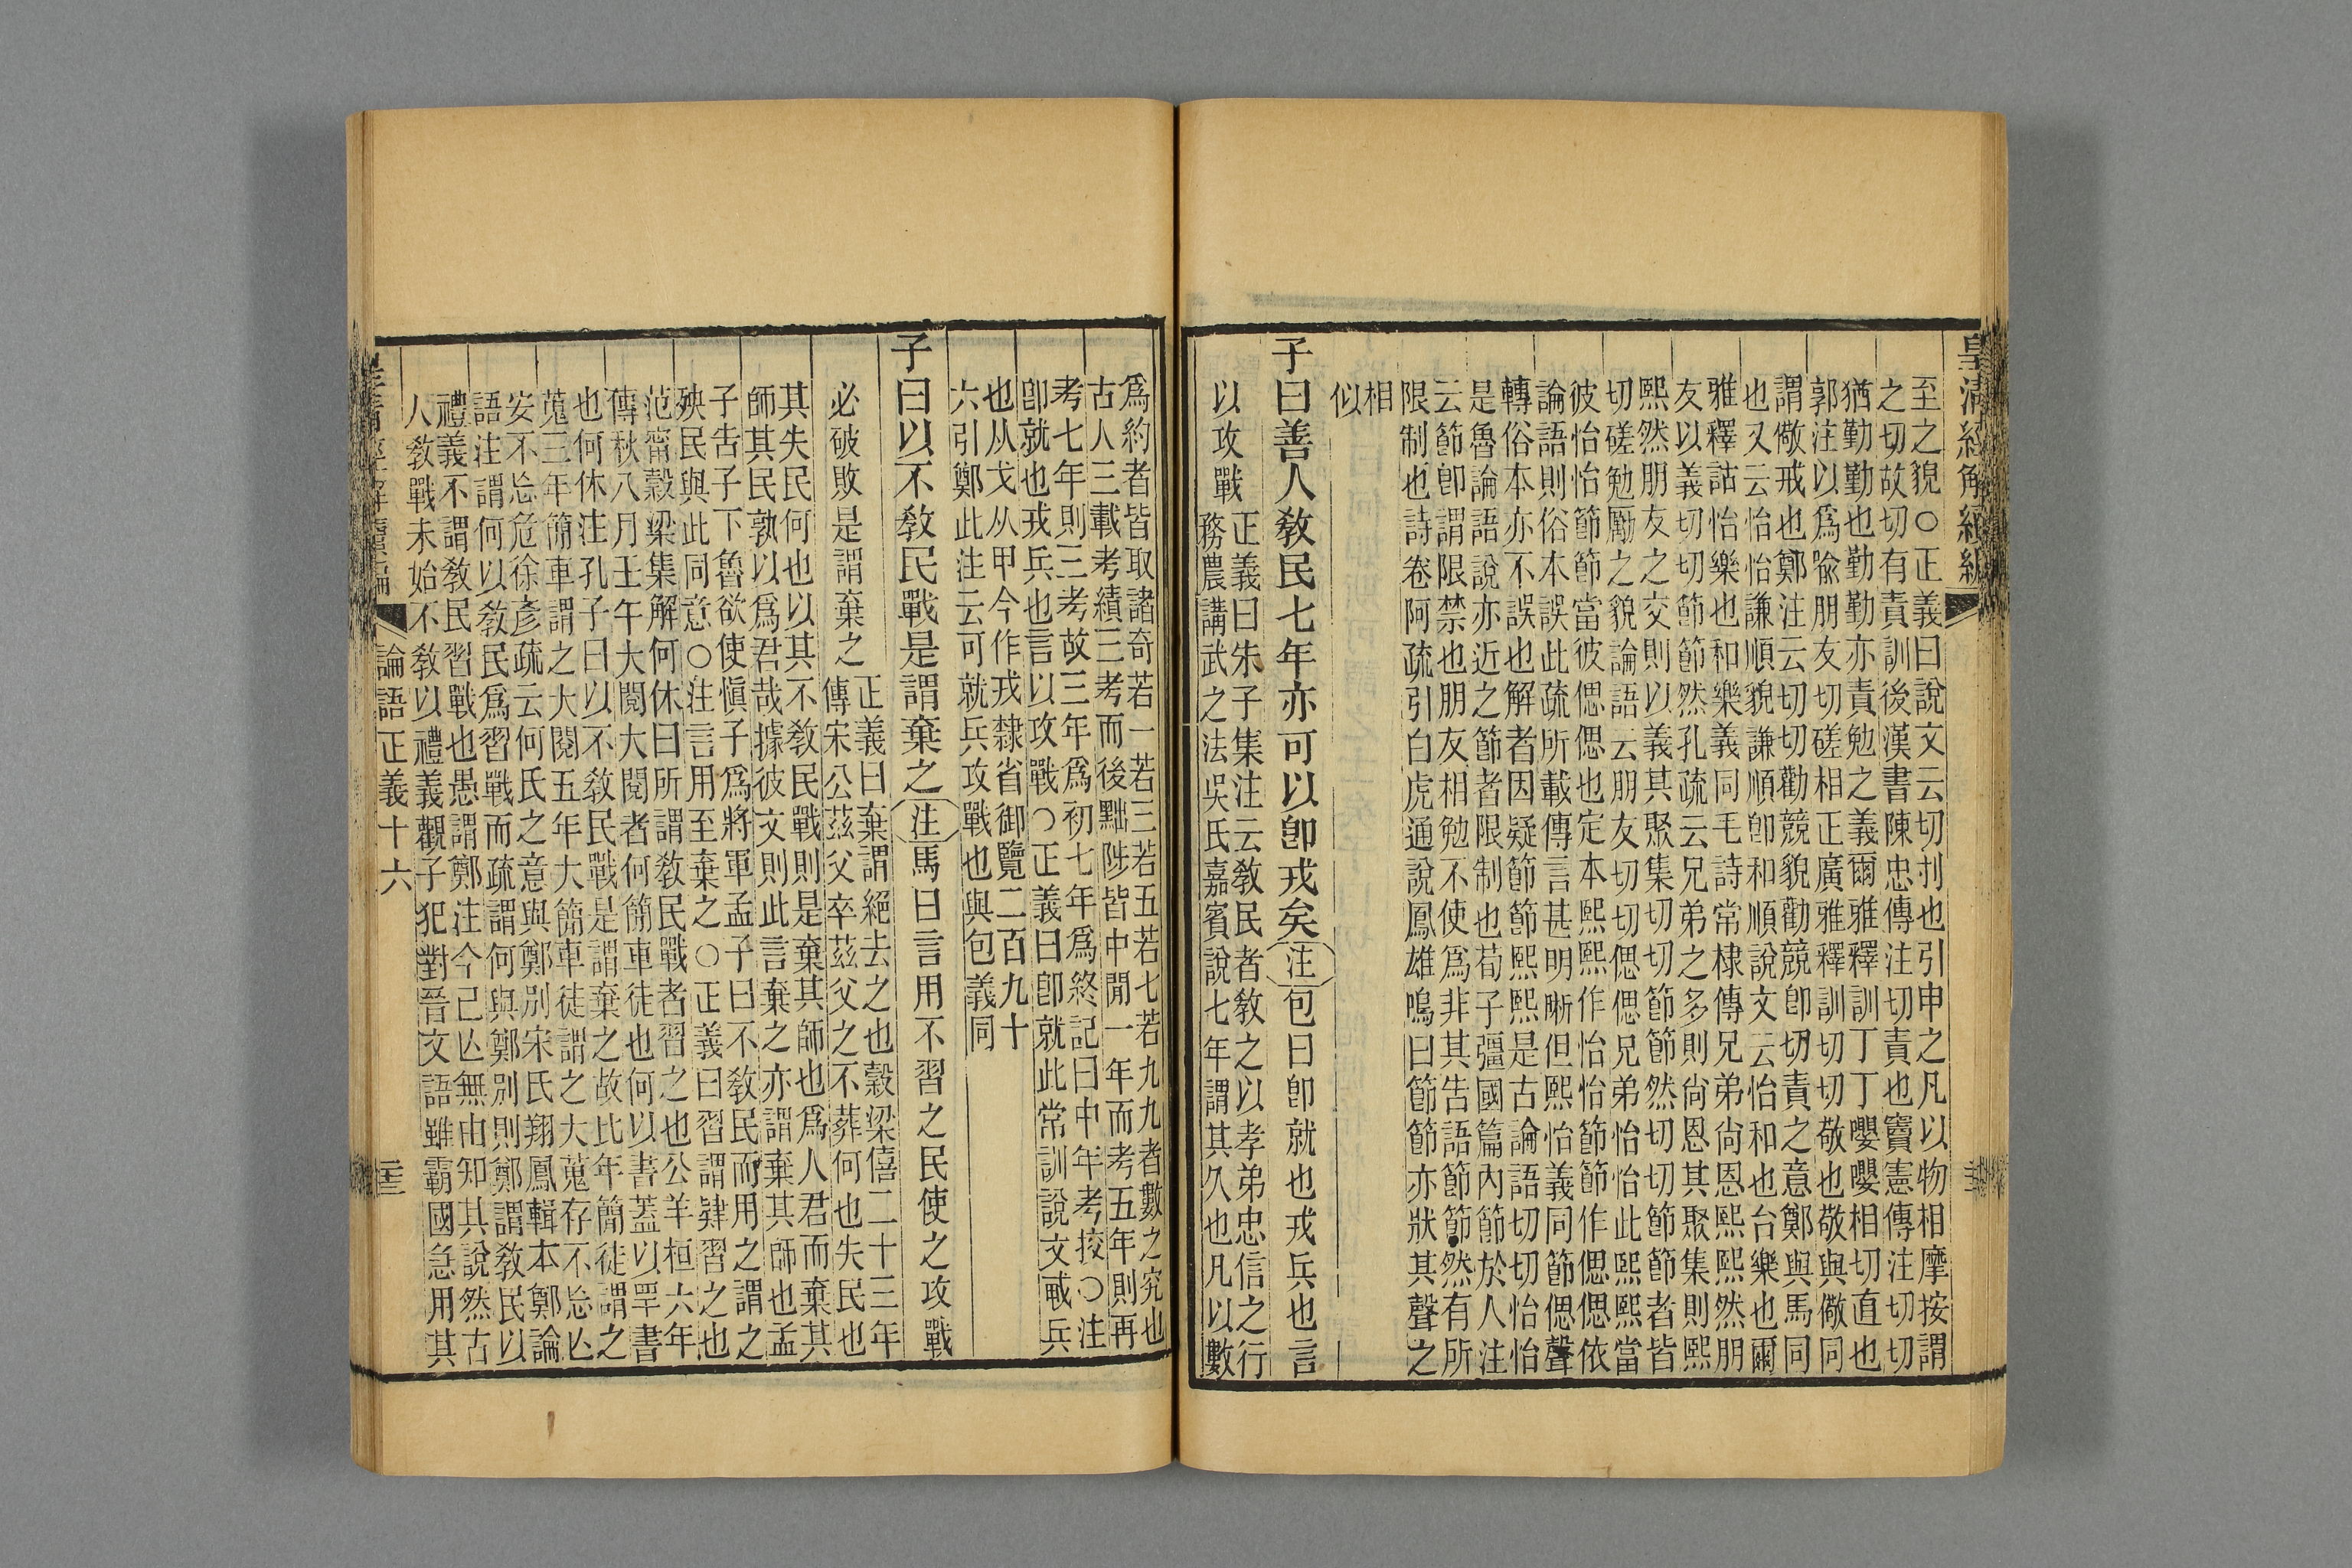 皇清經解續編
至之貌○正義曰說文云切刌也引申之凡以物相摩按謂
之切故切有責訓後漢書陳忠傳注切責也竇憲傳注切切
猶勤勤也勤勤亦責勉之義爾雅釋訓丁丁嚶嚶相切直也
郭注以爲喩朋友切磋相正廣雅釋訓切切敬也敬與儆同
謂儆戒也鄭注云切切勸競貌勸競卽切責之意鄭與馬同
也又云怡怡謙順貌謙順卽和順說文云怡和也台樂也爾
雅釋詁怡樂也和樂義同毛詩常棣傳兄弟尙恩熙熙然朋
友以義切切節節然孔疏云兄弟之多則尙恩其聚集則熙
熙然朋友之交則以義其聚集切切節節然切切節節者皆
切磋勉勵之貌論語云朋友切切偲偲兄弟怡怡此熙熙當
彼怡怡節節當彼偲偲也定本熙熙作怡怡節節作偲偲依
論語則俗本誤此疏所載傳言甚明晰但熙怡義同節偲聲
轉俗本亦不誤也解者因疑節節熙熙是古論語切切怡怡
是魯論語說亦近之節者限制也荀子彊國篇內節於人注
云節卽謂限禁也朋友相勉不使爲非其告語節節然有所
限制也詩卷阿疏引白虎通說鳳雄鳴曰節節亦狀其聲之
相
似
子曰善人敎民七年亦可以卽戎矣注包曰卽就也戎兵也言
以攻戰
正義曰朱子集注云敎民者敎之以孝弟忠信之行
務農講武之法吳氏嘉賓說七年謂其久也凡以數
爲約者皆取諸奇若一若三若五若七若九九者數之究也
古人三載考績三考而後黜陟皆中閒一年而考五年則再
考七年則三考故三年爲初七年爲終記曰中年考挍○注
卽就也戎兵也言以攻戰○正義曰卽就此常訓說文戎兵
也从戈从甲今作戎隸省御覽二百九十
六引鄭此注云可就兵攻戰也與包義同
子曰以不敎民戰是謂棄之注馬曰言用不習之民使之攻戰
必破敗是謂棄之
正義曰棄謂絕去之也穀梁僖二十三年
傳宋公茲父卒茲父之不葬何也失民也
其失民何也以其不敎民戰則是棄其師也爲人君而棄其
師其民孰以爲君哉據彼文則此言棄之亦謂棄其師也孟
子告子下魯欲使愼子爲將軍孟子曰不敎民而用之謂之
殃民與此同意○注言用至棄之○正義曰習謂肄習之也
范甯穀梁集解何休曰所謂敎民戰者習之也公羊桓六年
傳秋八月壬午大閱大閱者何簡車徒也何以書蓋以罕書
也何休注孔子曰以不敎民戰是謂棄之故比年簡徒謂之
蒐三年簡車謂之大閱五年大簡車徒謂之大蒐存不忘亾
安不忘危徐彥疏云何氏之意與鄭別宋氏翔鳳輯本鄭論
語注謂何以敎民爲習戰而疏謂何與鄭別則鄭謂敎民以
禮義不謂敎民習戰也愚謂鄭注今已亾無由知其說然古
人敎戰未始不敎以禮義觀子犯對晉文語雖霸國急用其
皇清經解續編
論語正義十六